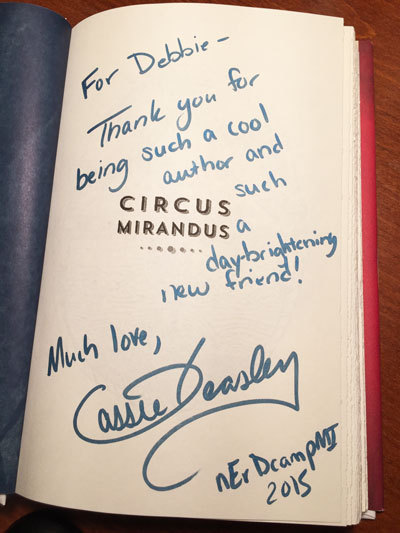 For Debbie-
Thank you for
being such a cool
author and
such
CIRCUS
MIRANDUS
a
day-brightening
new friend!
Much love,
Cassie Beasley
nErDcampMI
2015